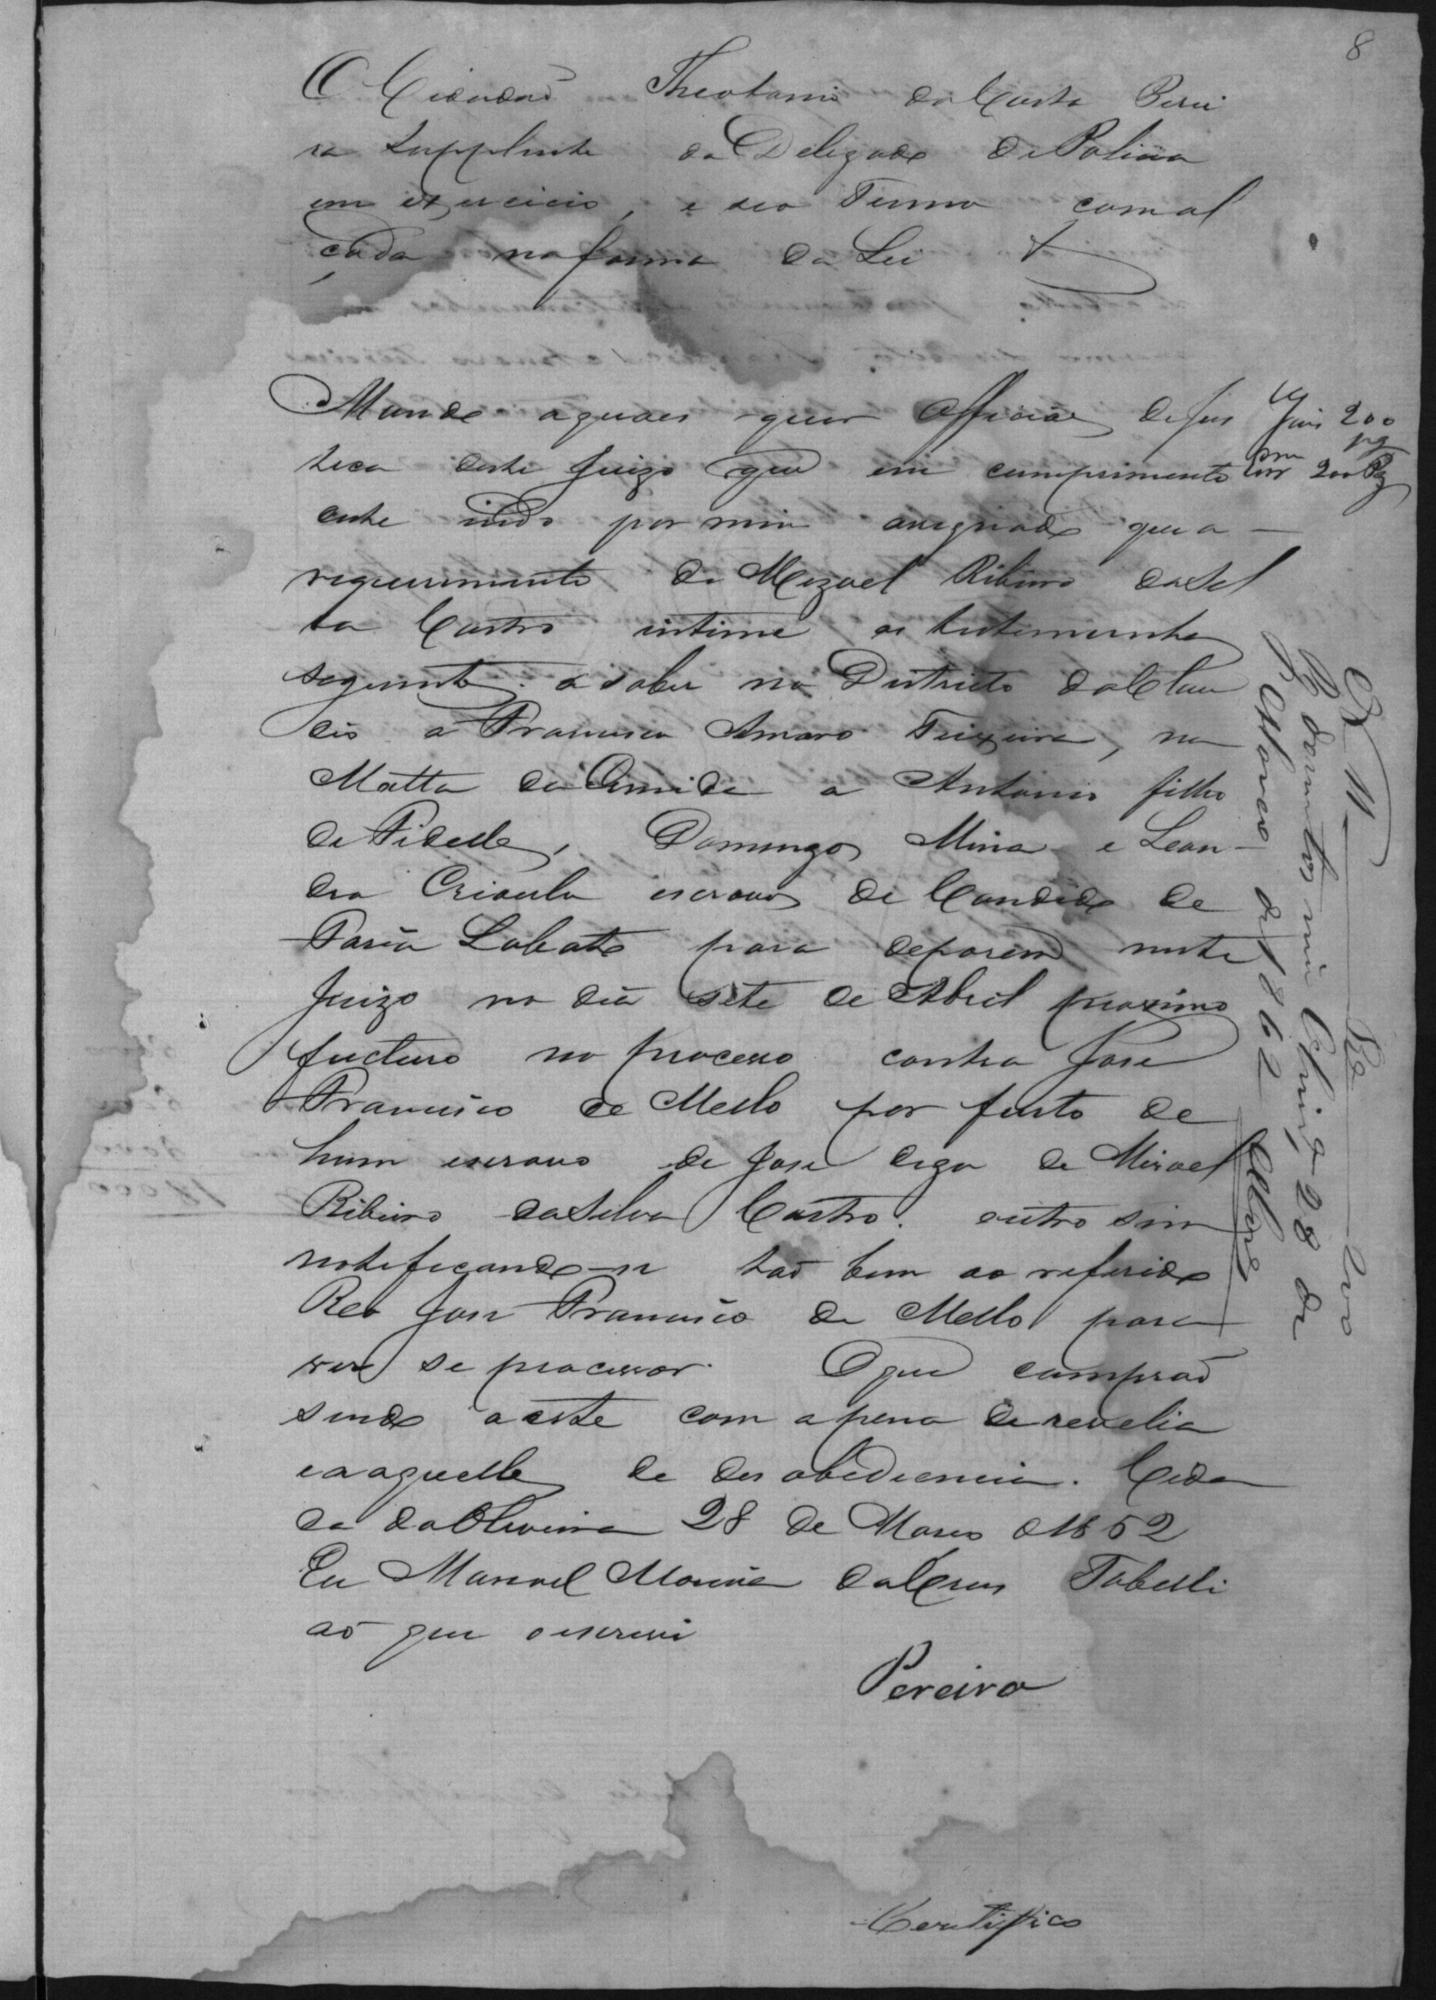 8
O Cidadaõ Theotonio da Costa Perei
ra Supplente do Delegado de Policia
em exercicio, e seo Termo com al
çada na forma da Lei &
Mando a quaes quer Officiaes de jus
tiça deste Juizo que em cumprimento
deste indo por mim assignado que a
requerimento de Mizael Ribeiro da Sil
va Castro intime as testemunhas
seguintes: a saber no Districto do Clau
dio a Francisco Amaro Teixeira, na
Matta da Ermida a Antonio filho
de Fidelles, Domingos Mina e Lean-
dra Crioula escravos de Candido de
Faria Lobato para deporem neste
Juizo no dia sete de Abril proximo
fucturo no processo contra Jose
Francisco de Mello por furto de
hum escravo de Jose digo de Misael
Ribeiro da Silva Castro. outro sim
notificando-se taõ bem ao referido
Reo Jose Francisco de Mello para
ver se processar. O que compraõ
sendo a este com a pena de revelia
e a aquelles de desobediencia. Cida
de da Oliveira 28 de Março d 1852
Eu Manoel Moreira da Cruz Tabelli
aõ que o escrevi
Pereira
Certiffico
Juis 200
pg
200 Pg
Nº 11 Rs 200
28 de
Março de 1862